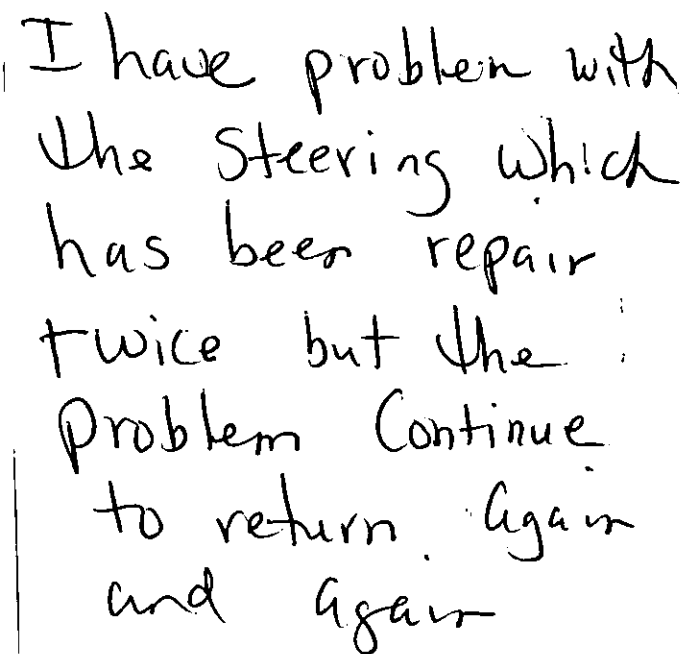 I have problem with
the Steering which
has been repair
twice but the
problem Continue
to return again
and again